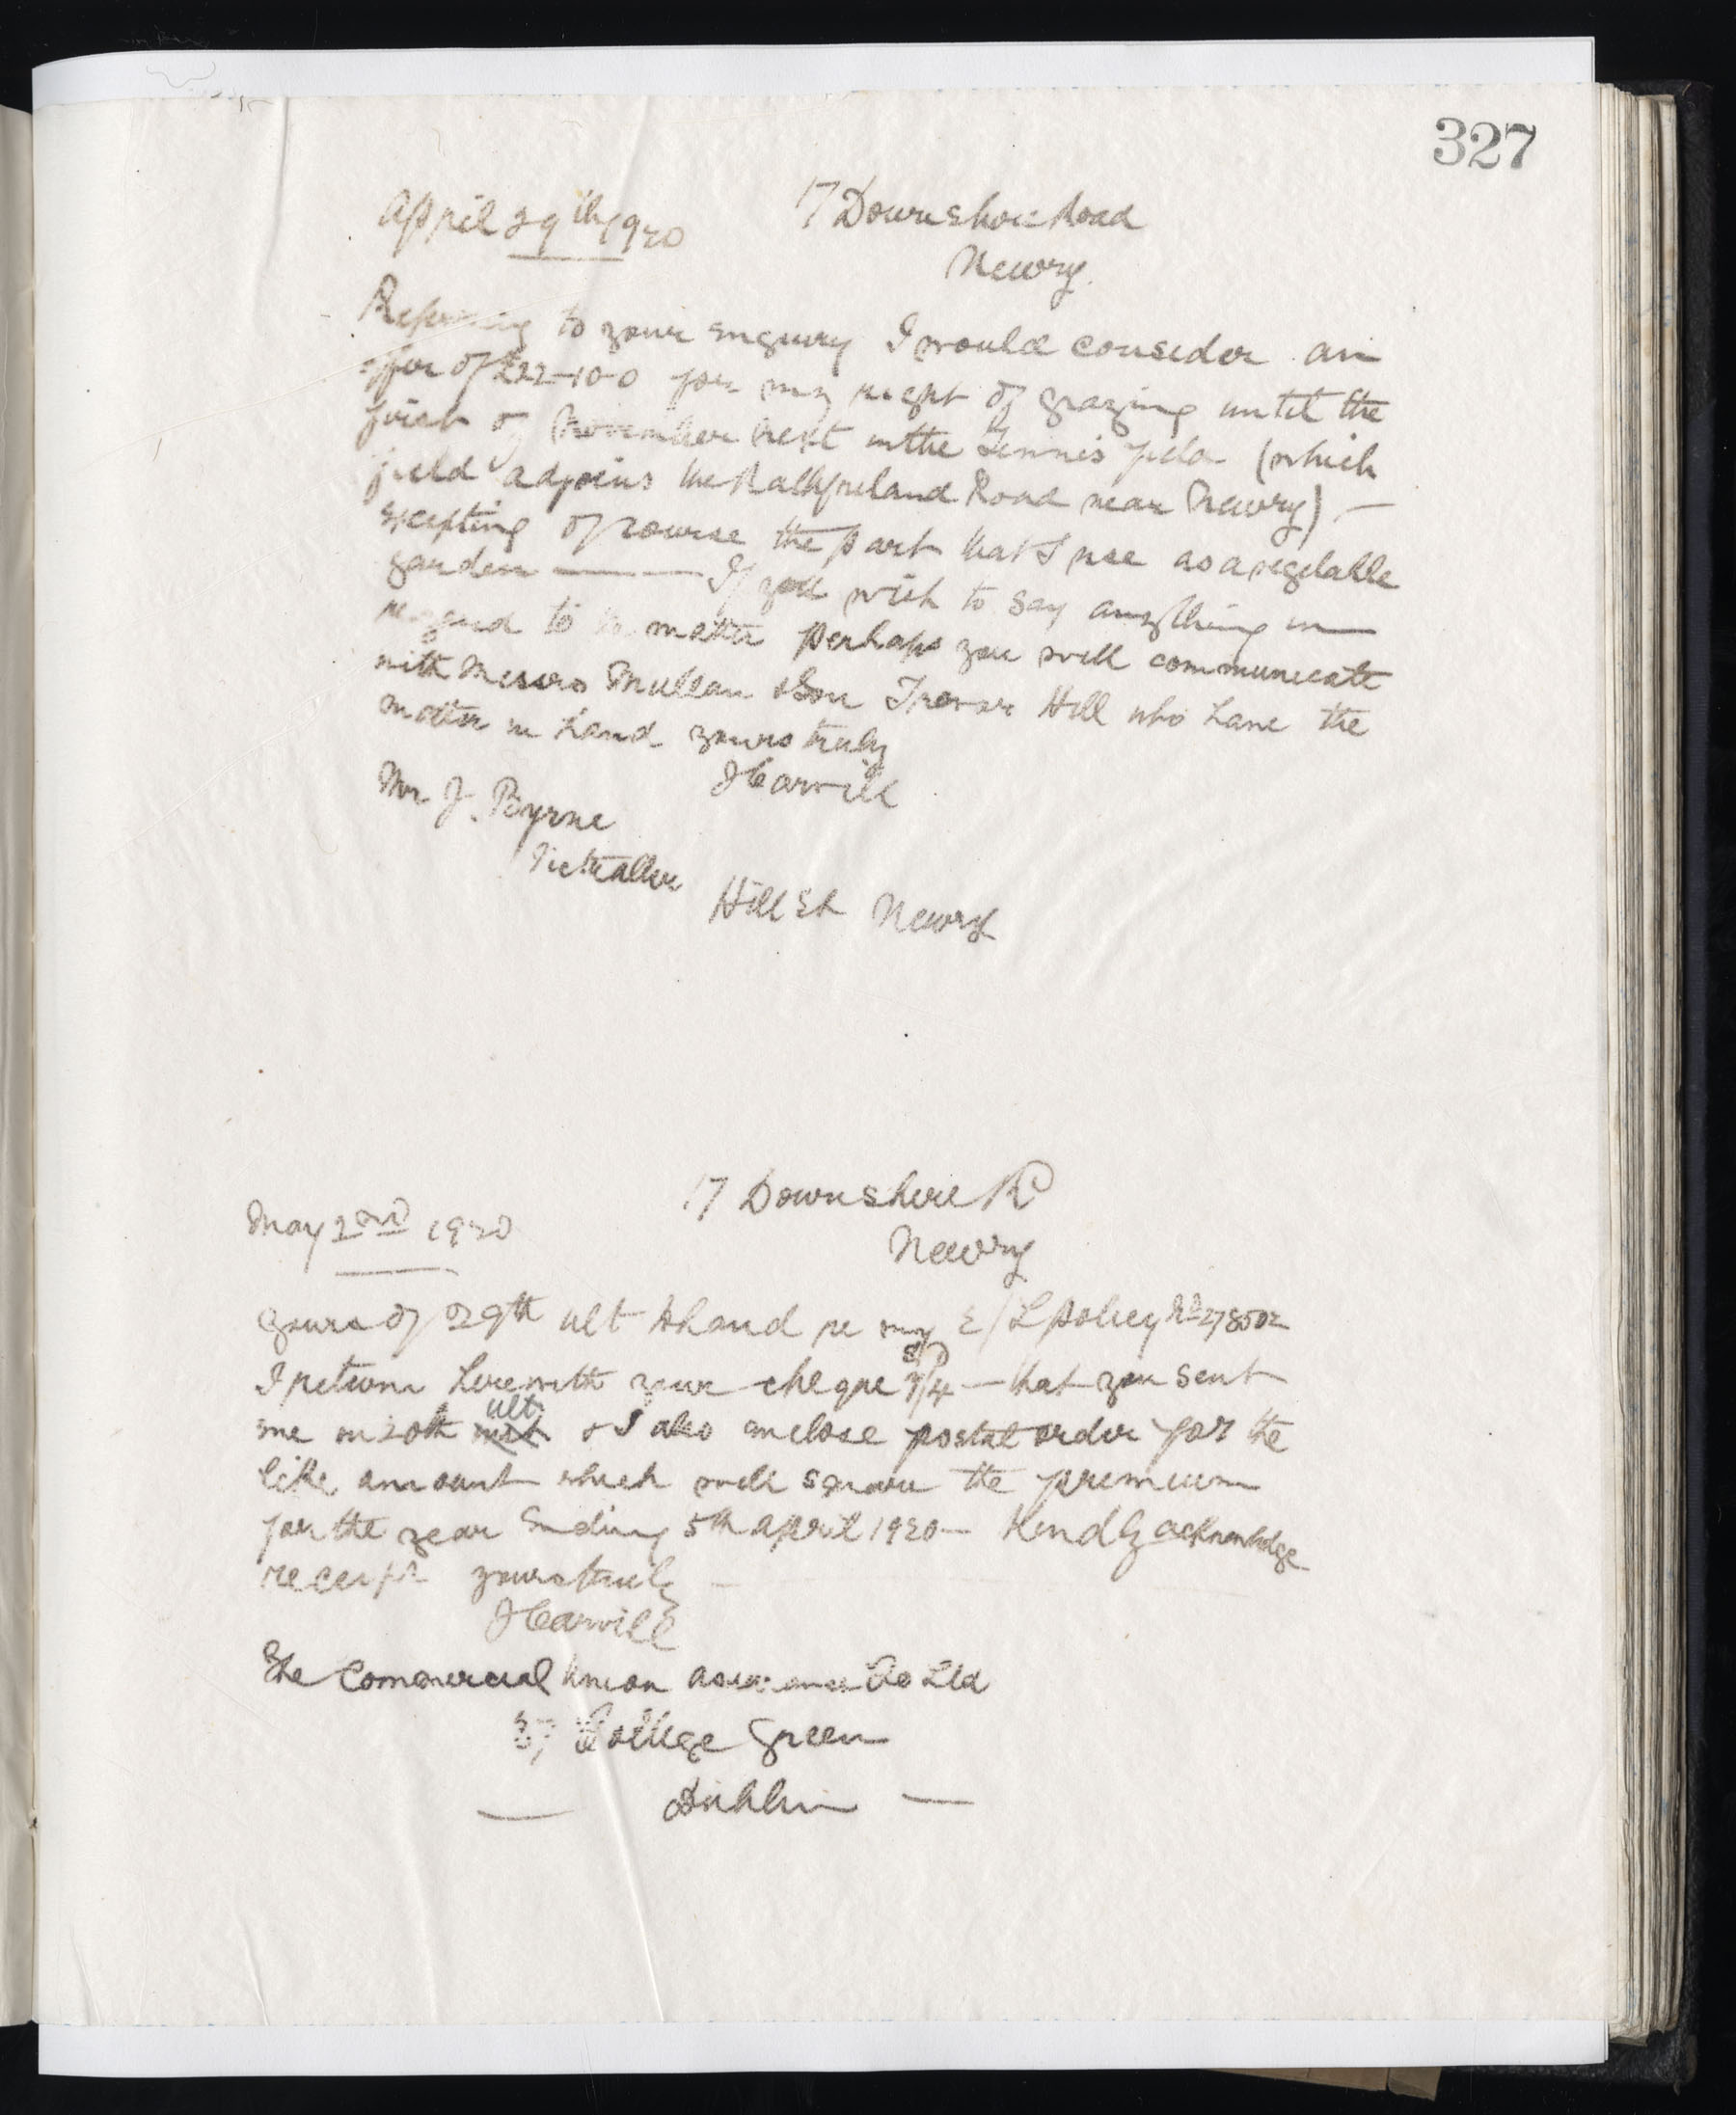 327
April 29th 1920
17 Downshire Road
Newry.
Referring to your enquiry I would consider an
offer of £22-10-0 for my right of grazing until the
first of November next in the Tennis field (which
field adjoins the Rathfriland Road near Newry) —
excepting of course the part that I use as a vegetable
garden — If you wish to say anything in
regard to the matter perhaps you will communicate
with Messrs Mullan & Son Trevor Hill who have the
matter in hand yours truly
JCarvill
Mr J. Byrne
Victualler
Hill St Newry
17 Downshire Rd
May 2nd 1920
Newry
yours of 29th ult to hand re my E/L policy No 278502
I return herewith your cheque 8/4 — that you sent
me on 20th ult & I also enclose postal order for the
like amount which will square the premium
for the year Ending 5th April 1920 — Kindly acknowledge
receipt yours truly —
JCarvill
The Commercial Union Assurance Co Ltd
37 College Green
— Dublin —